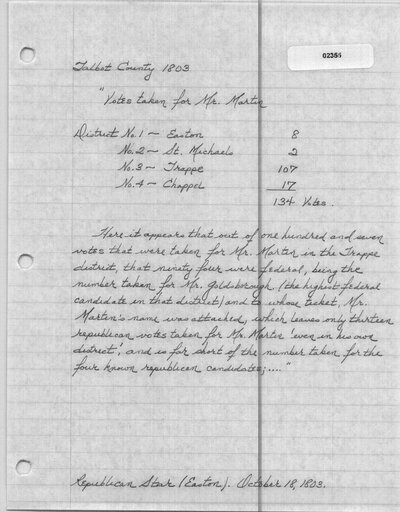 02355
Talbot County 1803
"Votes taken for Mr. Martin
District No. 1 ~ Easton 8
No. 2 ~ St. Michaels 2
No. 3 ~ Trappe 107
No. 4 ~ Chappel 17
134 Votes.
Here it appears that out of one hundred and seven
votes that were taken for Mr. Martin in the Trappe
district, that ninety four were federal, being the
number taken for Mr. Goldsborough (the highest federal
candidate in that district) and to whose ticket, Mr.
Martin's name was attached, which leaves only thirteen
republican votes taken for Mr. Martin 'even in his own
district', and is far short of the number taken for the
four known republican candidates;...."
Republican Star (Easton). October 18, 1803.